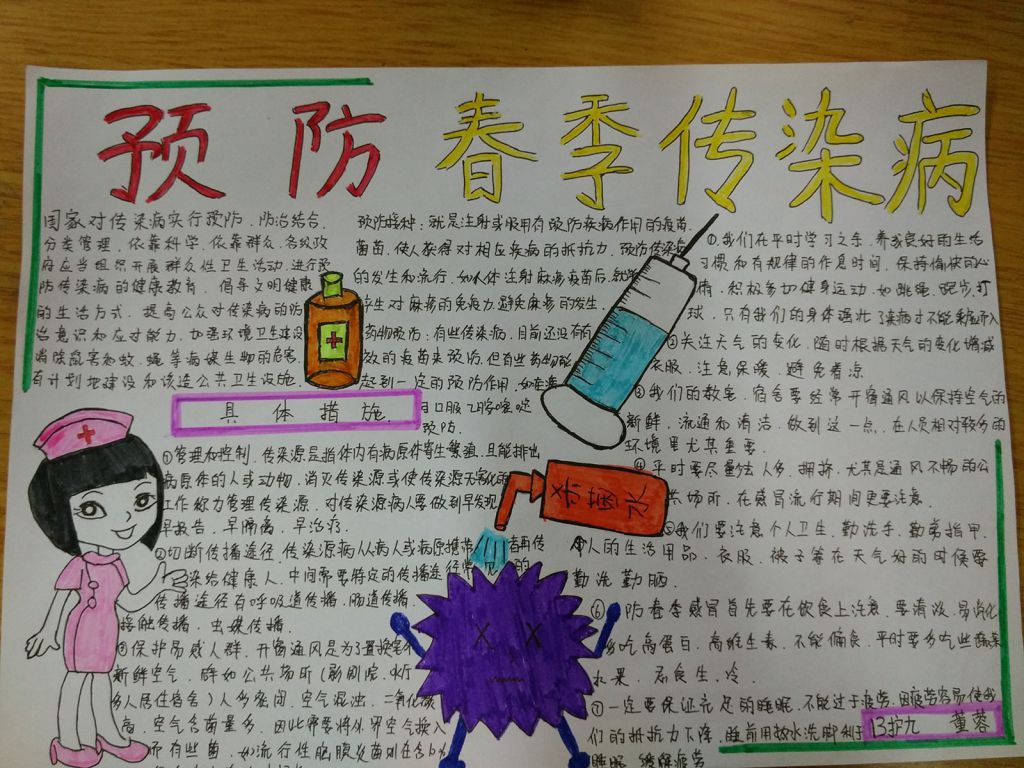 预防春季传染病
国家对传染病实行预防、防治结合、
分类管理、依靠科学、依靠群众、各级政
府应当组织开展群众性卫生活动,进行预
防传染病的健康教育,倡导文明健康
的生活方式,提高公众对传染病的防
治意识和应对能力,加强环境卫生建设
消除鼠害和蚊、蝇等病媒生物的危害,
有计划地建设和改造公共卫生设施.
具体措施.
①管理和控制,传染源是指体内有病原体寄生繁殖,且能排出
病原体的人或动物,消灭传染源或使传染源无害化的
工作称为管理传染源,对传染源病人要做到早发现
早报告,早隔离,早治疗.
②切断传播途径,传染源病从病人或病原携带 再传
染给健康人,中间需要特定的传播途径常见的
传播途径有呼吸道传播,肠道传播,
接触传播,虫媒传播.
③保非易感人群,开窗通风是为了置换室外
新鲜空气,群如公共场所(影剧院,
多人居住宿舍)人多密闭,空气混浊,二氧化碳
高,空气含菌量多,因此需要将外界空气换入
所有些菌,如流行性脑膜炎菌则在含
预防接种:就是注射或服用有预防疾病作用的疫苗
菌苗,使人获得对相应疾病的抵抗力,预防传染病
的发生和流行,如人体注射麻疹疫苗后,就能
产生对麻疹的免疫力,避免麻疹的发生.
药物预防:有些传染病,目前还没有
效的疫苗来预防,但有些药物能
起到一定的预防作用,如在
口服
预防.
杀菌水
①.我们在平时学习之余,养成良好的生活
习惯和有规律的作息时间,保持愉快的心
情,积极参加健身运动,如跳绳,跑步,打
球,只有我们的身体强壮了,染病才不能乘虚而入
②关注天气的变化,随时根据天气的变化增减
衣服,注意保暖,避免着凉
③我们的教室,宿舍要经常开窗通风以保持空气的
新鲜,流通和清洁,做到这一点,在人员相对较多的
环境里尤其重要.
④平时要尽量少去人多,拥挤,尤其是通风不畅的公
共场所,在感冒流行期间更要注意.
⑤我们要注意个人卫生,勤洗手,勤剪指甲.
个人的生活用品,衣服,被子等在天气好的时候要
勤洗勤晒.
⑥防春季感冒首先要在饮食上注意,要清淡,易消化
多吃高蛋白,高维生素,不能偏食,平时要多吃些蔬菜
水果,忌食生,冷.
⑦一定要保证充足的睡眠,不能过于疲劳,因疲劳容易使我
们的抵抗力下降,睡前用热水洗脚利于
睡眠,缓解疲劳
13护九 董蓉